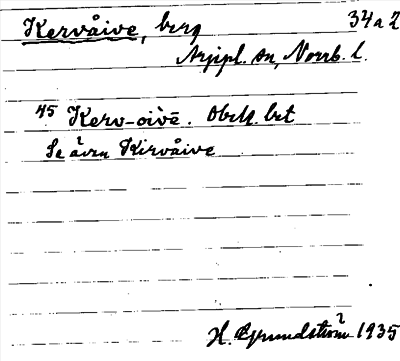 Kervåive, berg 34a2
Arjepl. sn, Norrb. l.
45 Kerv-oivē. Obek. brt
Se även Kirvåive
H. Grundström 1935